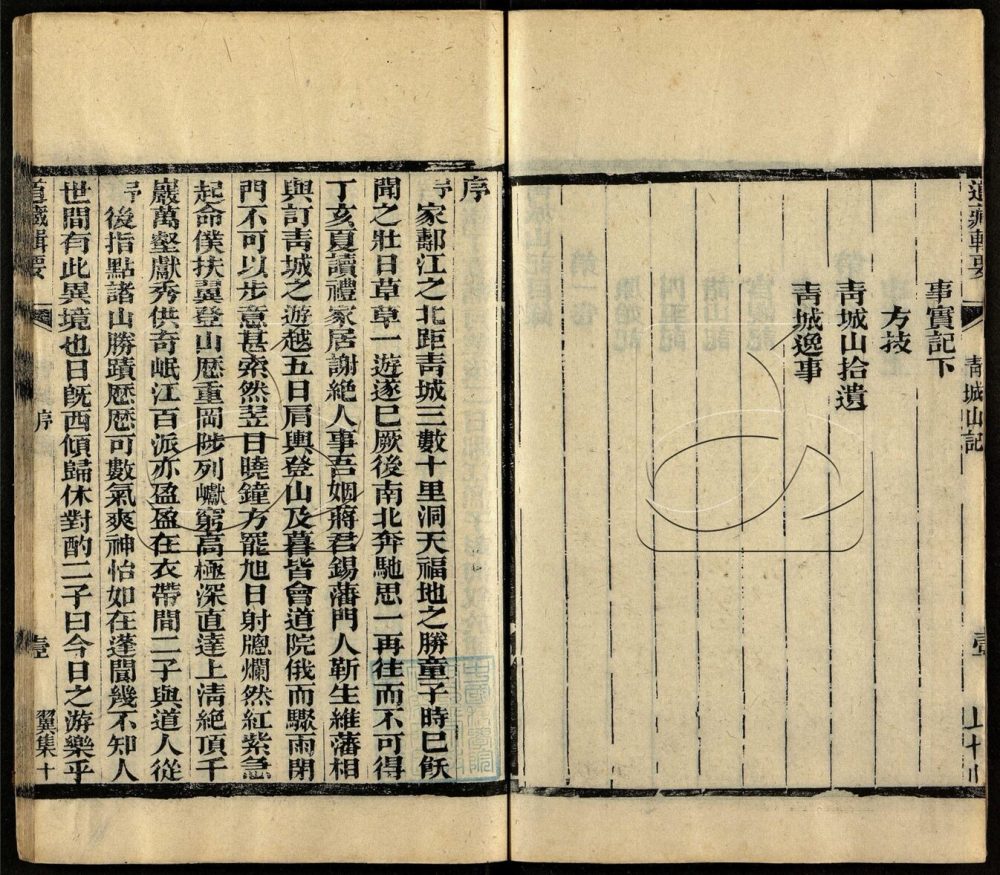 道藏輯要
青城山記
壹
事實記下
方技
青城山拾遺
青城逸事
序
予家鄰江之北距青城三數十里洞天福地之勝童子時已飫
聞之壯日草草一遊遂已厥後南北奔馳思一再往而不可得
丁亥夏讀禮家居謝絕人事吾姻蔣君錫藩門人靳生維藩相
與訂青城之游越五日肩輿登山及暮皆會道院俄而驟雨閉
門不可以步意甚索然翌日曉鐘方罷旭日射牕爛然紅紫急
起命僕扶翼登山歷重岡陟列巘窮高極深直達上清絕頂千
巖萬壑獻秀供奇岷江百派亦盈盈在衣帶間二子與道人從
予後指點諸山勝蹟歷歷可數氣爽神怡如在蓬閬幾不知人
世間有此異境也日旣西傾歸休對酌二子曰今日之游樂乎
道藏輯要
序
壹
翼集十